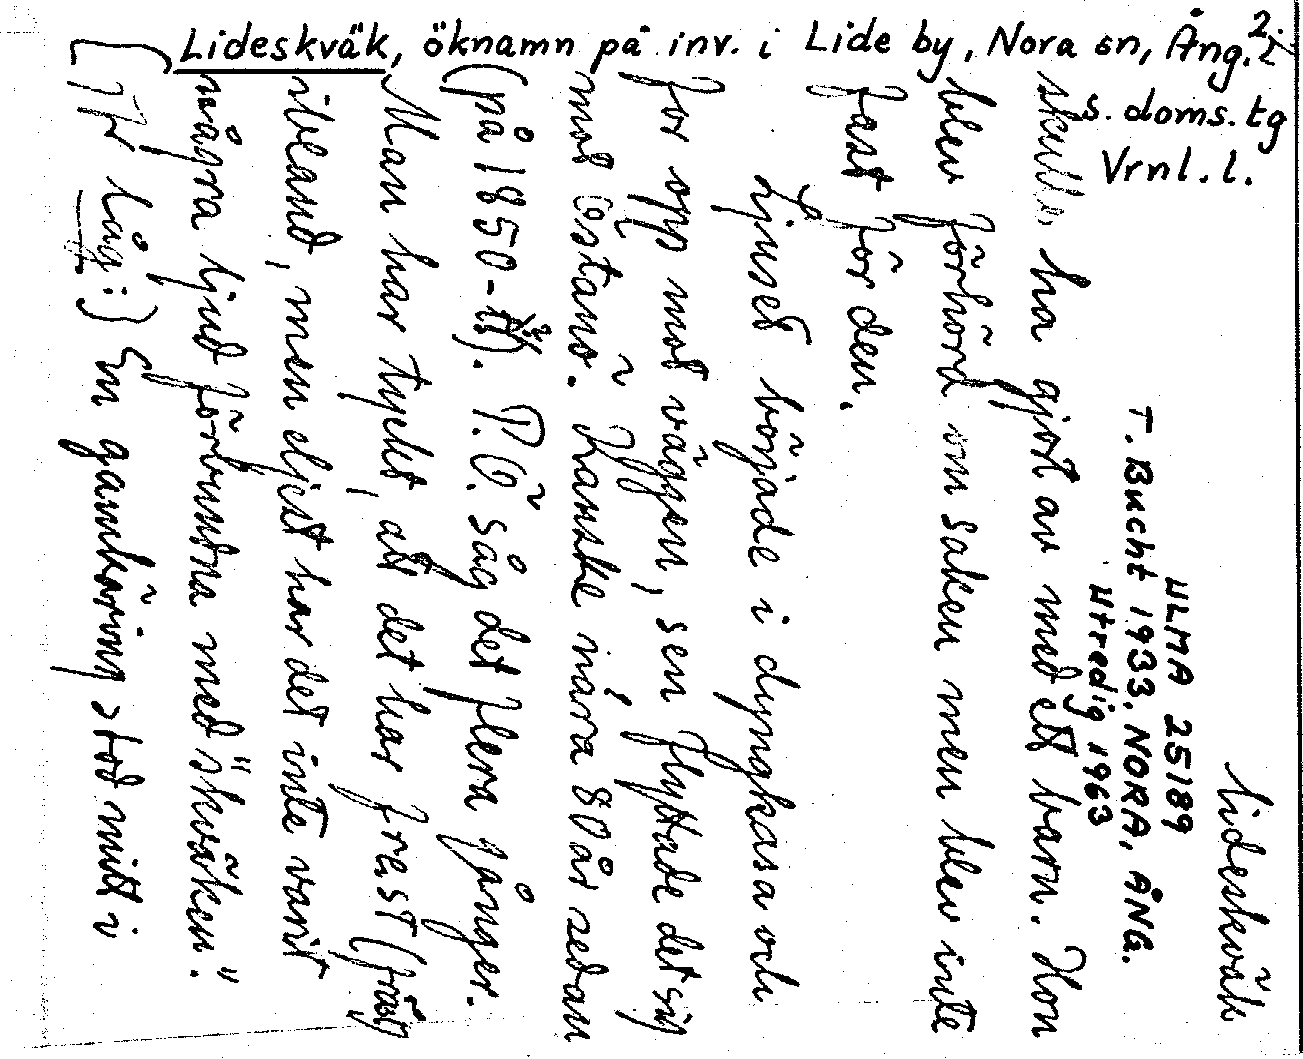 Lideskväk, öknamn på inv. i Lide by, Nora sn, Ång. 2.
s. doms. tg
Vrnl. l.
Lideskväk
ULMA 25189
T. Bucht 1933. NORA, ÅNG.
Utredig 1963
skulle ha gjort av med ett barn. Hon
blev förhörd om saken men blev inte
fast för den.
Ljuset började i dyngkasa och
for opp mot väggen, sen flyttade det sig
mot Östanö. Kanske nära 80 år sedan
(på 1850-t). P.Ö. såg det flera gånger.
Man har tyckt, att det har frest (fräst)
ibland, men eljest har det inte varit
några ljud förbundna med "skväken".
låg:) En gamkäring stod mitt i